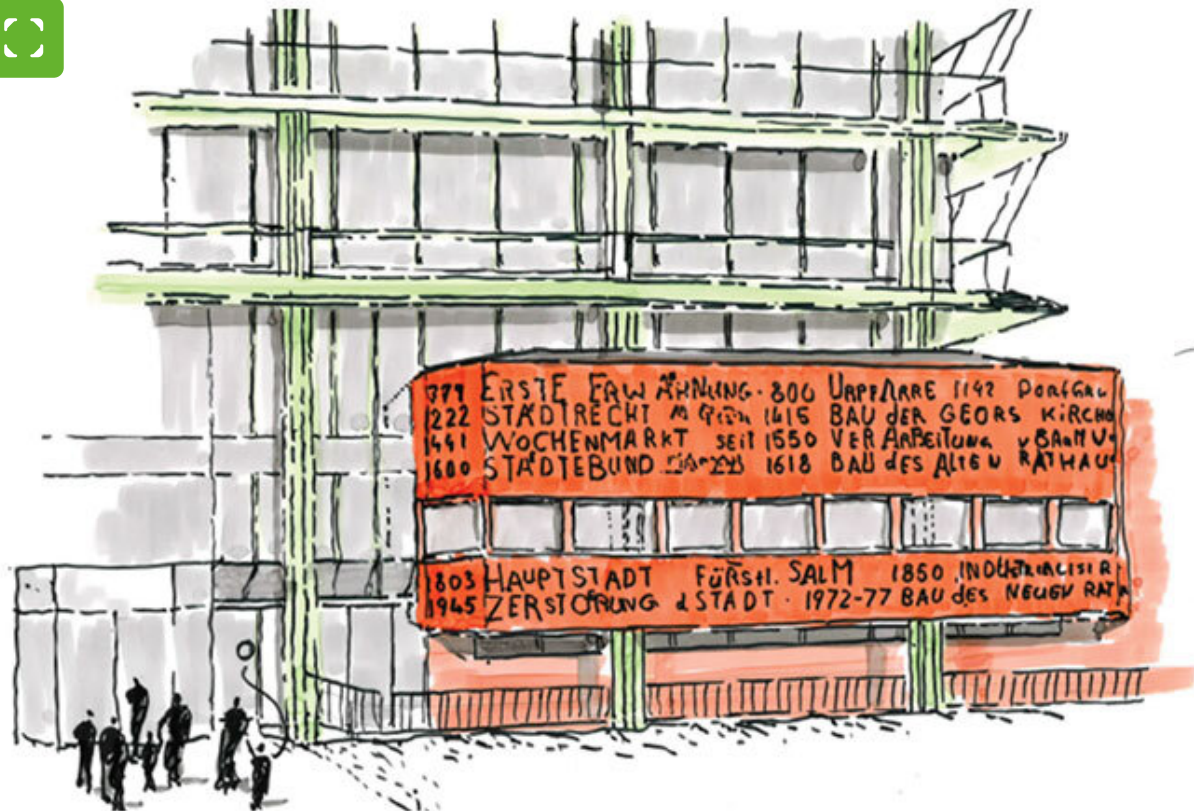 779 ERSTE ERWÄHNUNG · 800 URPFARRE 1142 DORFGRU
1222 STADTRECHT 1415 BAU DER GEORS KiRCHE
1441 WOCHENMARKT SEiT 1550 VERARBEiTUNG v BAUMW
1600 STÄDTEBUND 1618 BAU dES ALTEN RATHAU
1803 HAUPTSTADT FüRStl. SALM 1850 INDUSTRIALISIR
1945 ZERSTÖRUNG d STADT · 1972-77 BAU dES NEUEN RATH